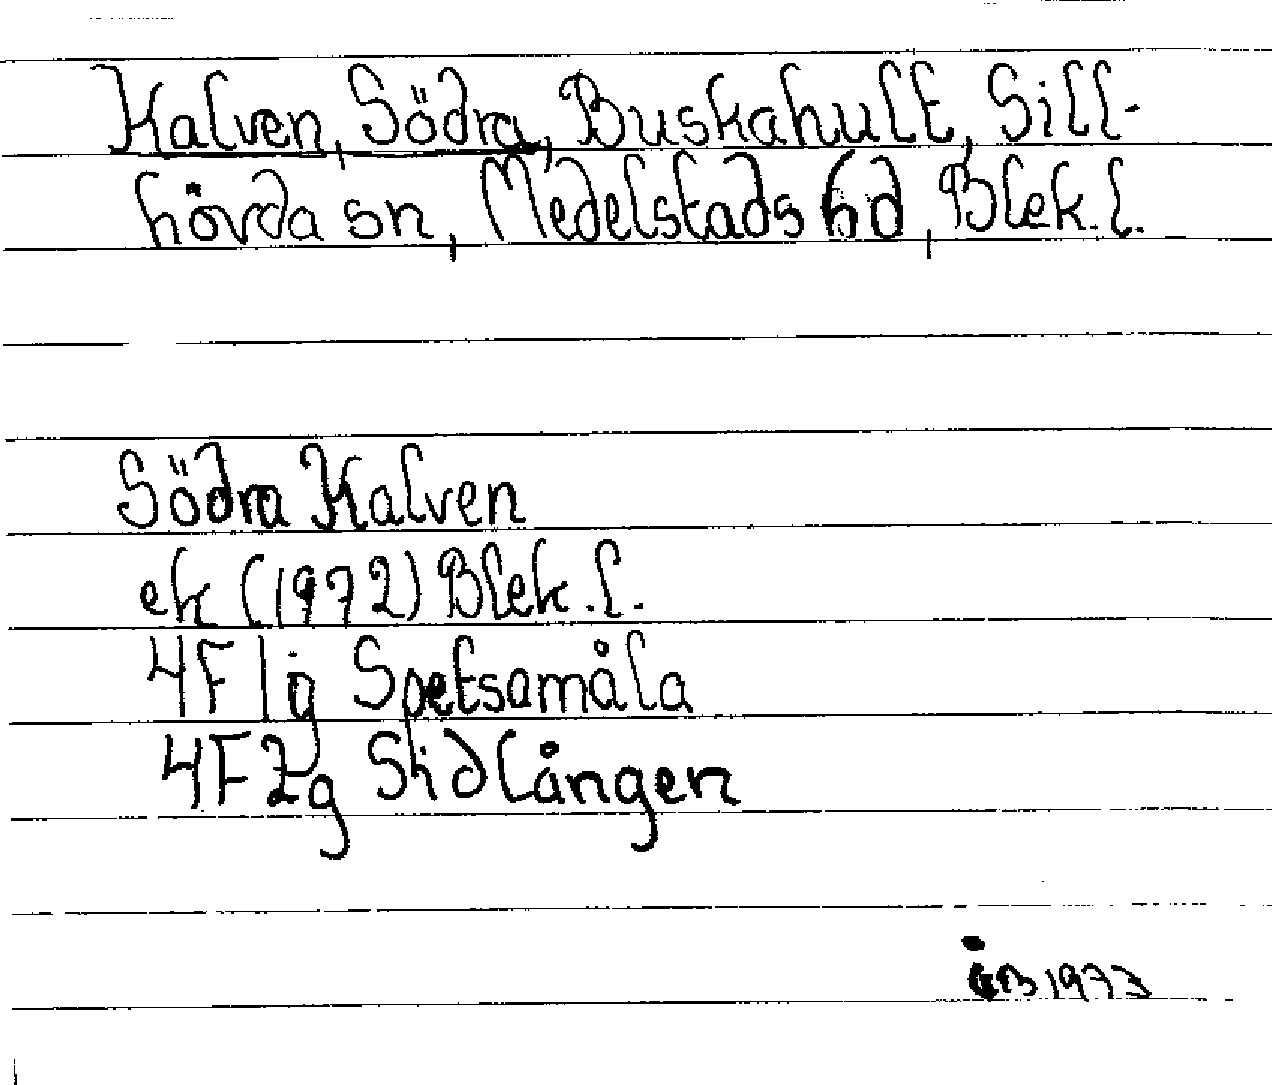 Kalven, Södra, Buskahult, Sill-
hövda sn, Medelstads hd, Blek. l.
Södra Kalven
ek (1972) Blek. l.
4F 1g Spetsamåla
4F 2g Slidlången
1973